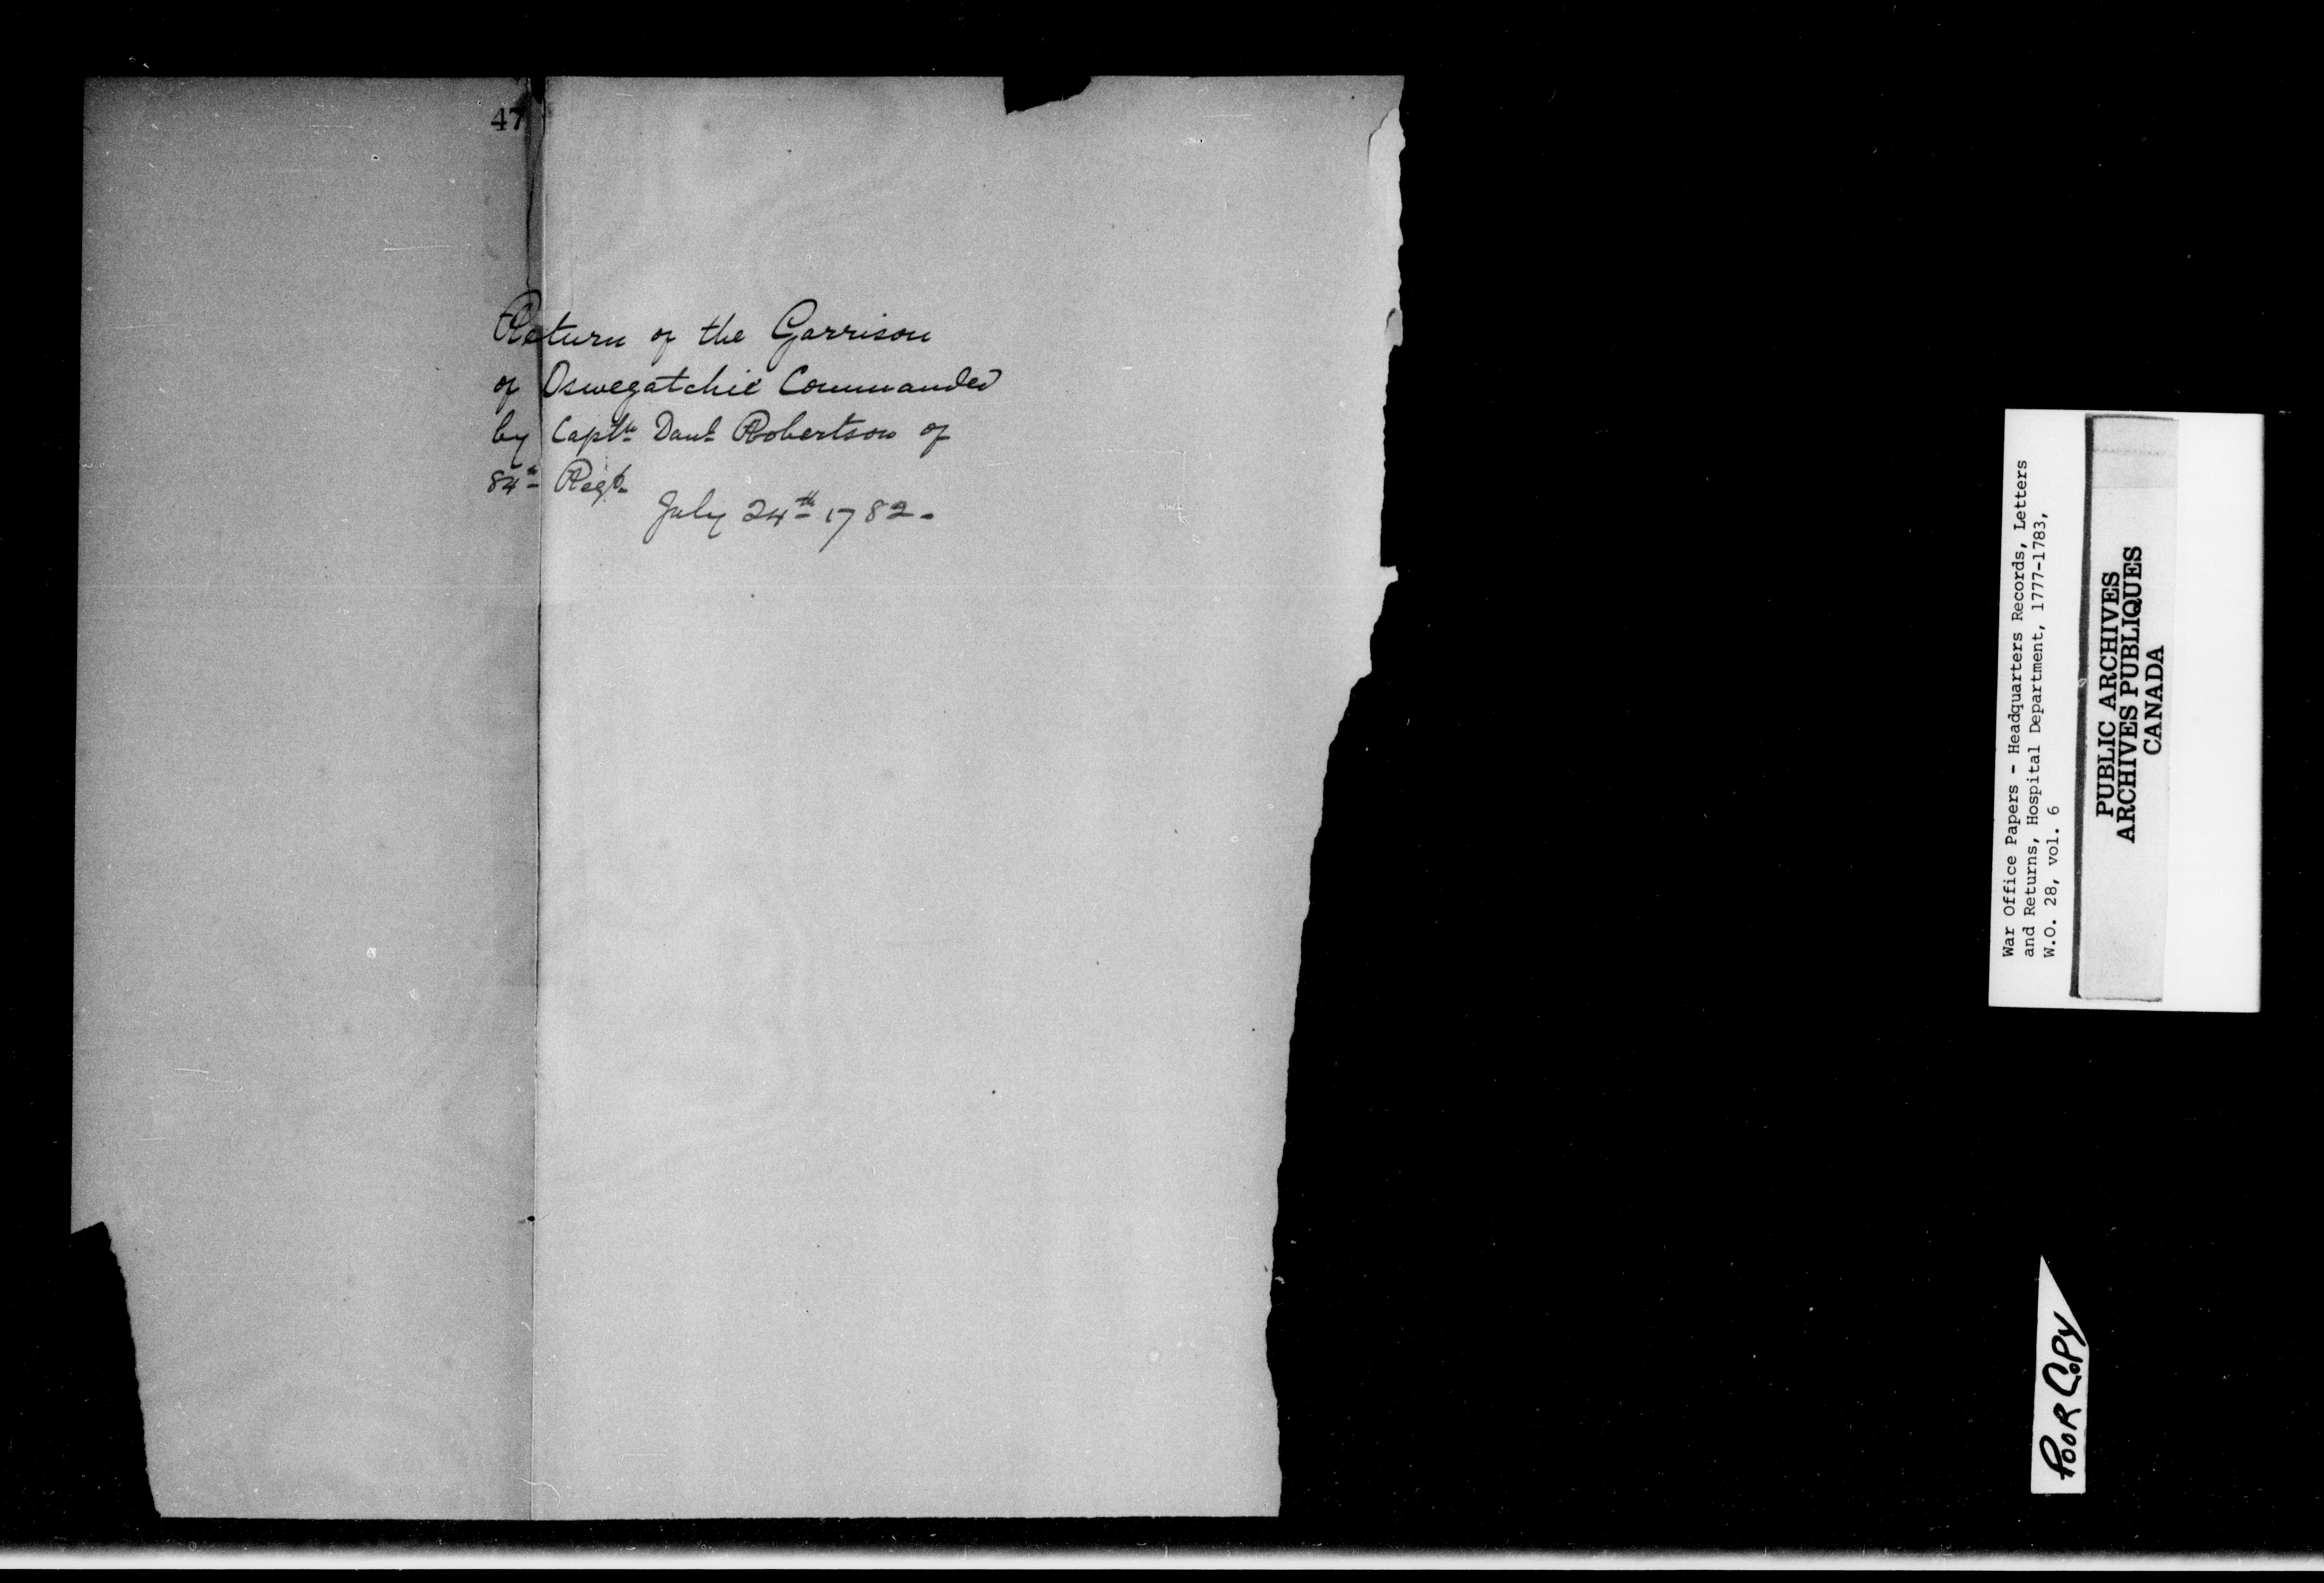 47
Return of the Garrison
of Oswegatchie Commanded
by Captn Danl Robertson of
84th Regt
July 24th 1782.
War Office Papers - Headquarters Records, Letters
and Returns, Hospital Department, 1777-1783,
W.O. 28, vol. 6
PUBLIC ARCHIVES
ARCHIVES PUBLIQUES
CANADA
POOR COPY